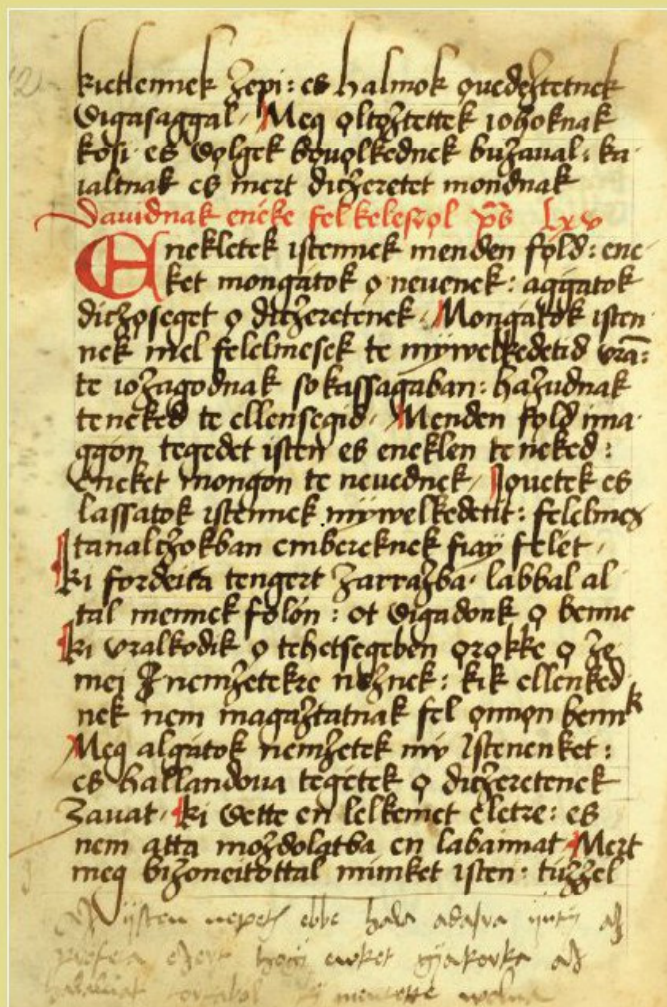 kietlennek zepi: es halmok ǫuedeztetnek
vigasaggal. Meg ǫltǫztettek iohoknak
kosi es vǫlgek bǫuǫlkednek buzaual: ka
ialtnak es mert dichęretet mondnak
Dauidnak eneke felkelesrǫl ps lxv
Enekletek istennek menden fǫld: ene
ket mongatok ǫ neuenek: aggatok
dichǫseget ǫ dicheretenek. Mongatok isten
nek mel felelmesek te mywelkedetid vrā:
te iozagodnak sokassagaban: hazudnak
teneked te ellensegid. Menden fǫld ima
ggon tegedet isten es eneklen teneked:
eneket mongon te neuednek. Iǫuetek es
lassatok istennek mywelkedetit: felelmes
tanalchokban embereknek fiay felet.
ki fordeita tengert zarrazba. labbal al
tal mennek folón: ot vigadonk ǫ benne
ki vralkodik ǫ tehetsegeben ǫrǫkke ǫ ze
mei nemzetekre neznek: kik ellenked
nek nem magaztatnak fel ǫnmon bennk
Meg algatok nemzetek my Istenenket:
es hallandoua tegetek ǫ dicheretenek
zauat. ki vette en lelkemet eletre: es
nem atta mozdolatba en labaimat Mert
meg bizoneitottal minket isten: tuzzel
ebbe